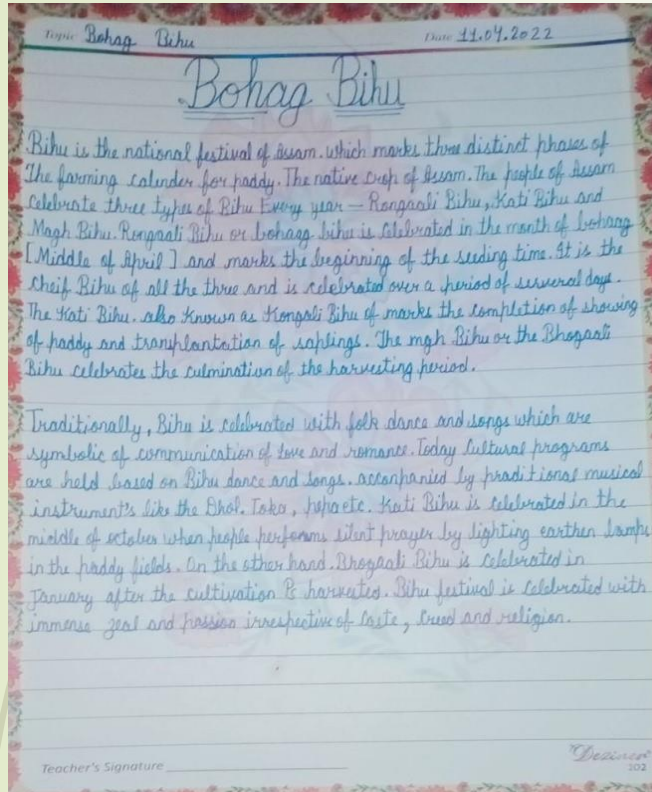 Topic Bohag Bihu Date 11.04.2022
Bohag Bihu
Bihu is the national festival of Assam. which marks three distinct phases of
The farming calender for paddy. The native crop of Assam. The people of Assam
celebrate three types of Bihu Every year — Rongaali Bihu, Kati Bihu and
Magh Bihu. Rongaali Bihu or bohagg bihu is celebrated in the month of bohagg
[Middle of April] and marks the beginning of the seeding time. It is the
cheif Bihu of all the three and is celebrated over a period of serveral days.
The Kati Bihu. also known as Kongali Bihu of marks the completion of showing
of paddy and transplantation of saplings. The mgh Bihu or the Bhogaali
Bihu celebrates the culmination of the harvesting period.
Traditionally, Bihu is celebrated with folk dance and songs which are
symbolic of communication of love and romance. Today Cultural programs
are held based on Bihu dance and songs. acconpanied by praditional musical
instrument's like the Dhol. Toka, pepa etc. Kati Bihu is celebrated in the
middle of october when people performs silent prayer by lighting earthen lamps
in the paddy fields. On the other hand. Bhogaali Bihu is celebrated in
January after the cultivation is harvested. Bihu festival is celebrated with
immense zeal and passion irrespective of caste, creed and religion.
Teacher's Signature
202